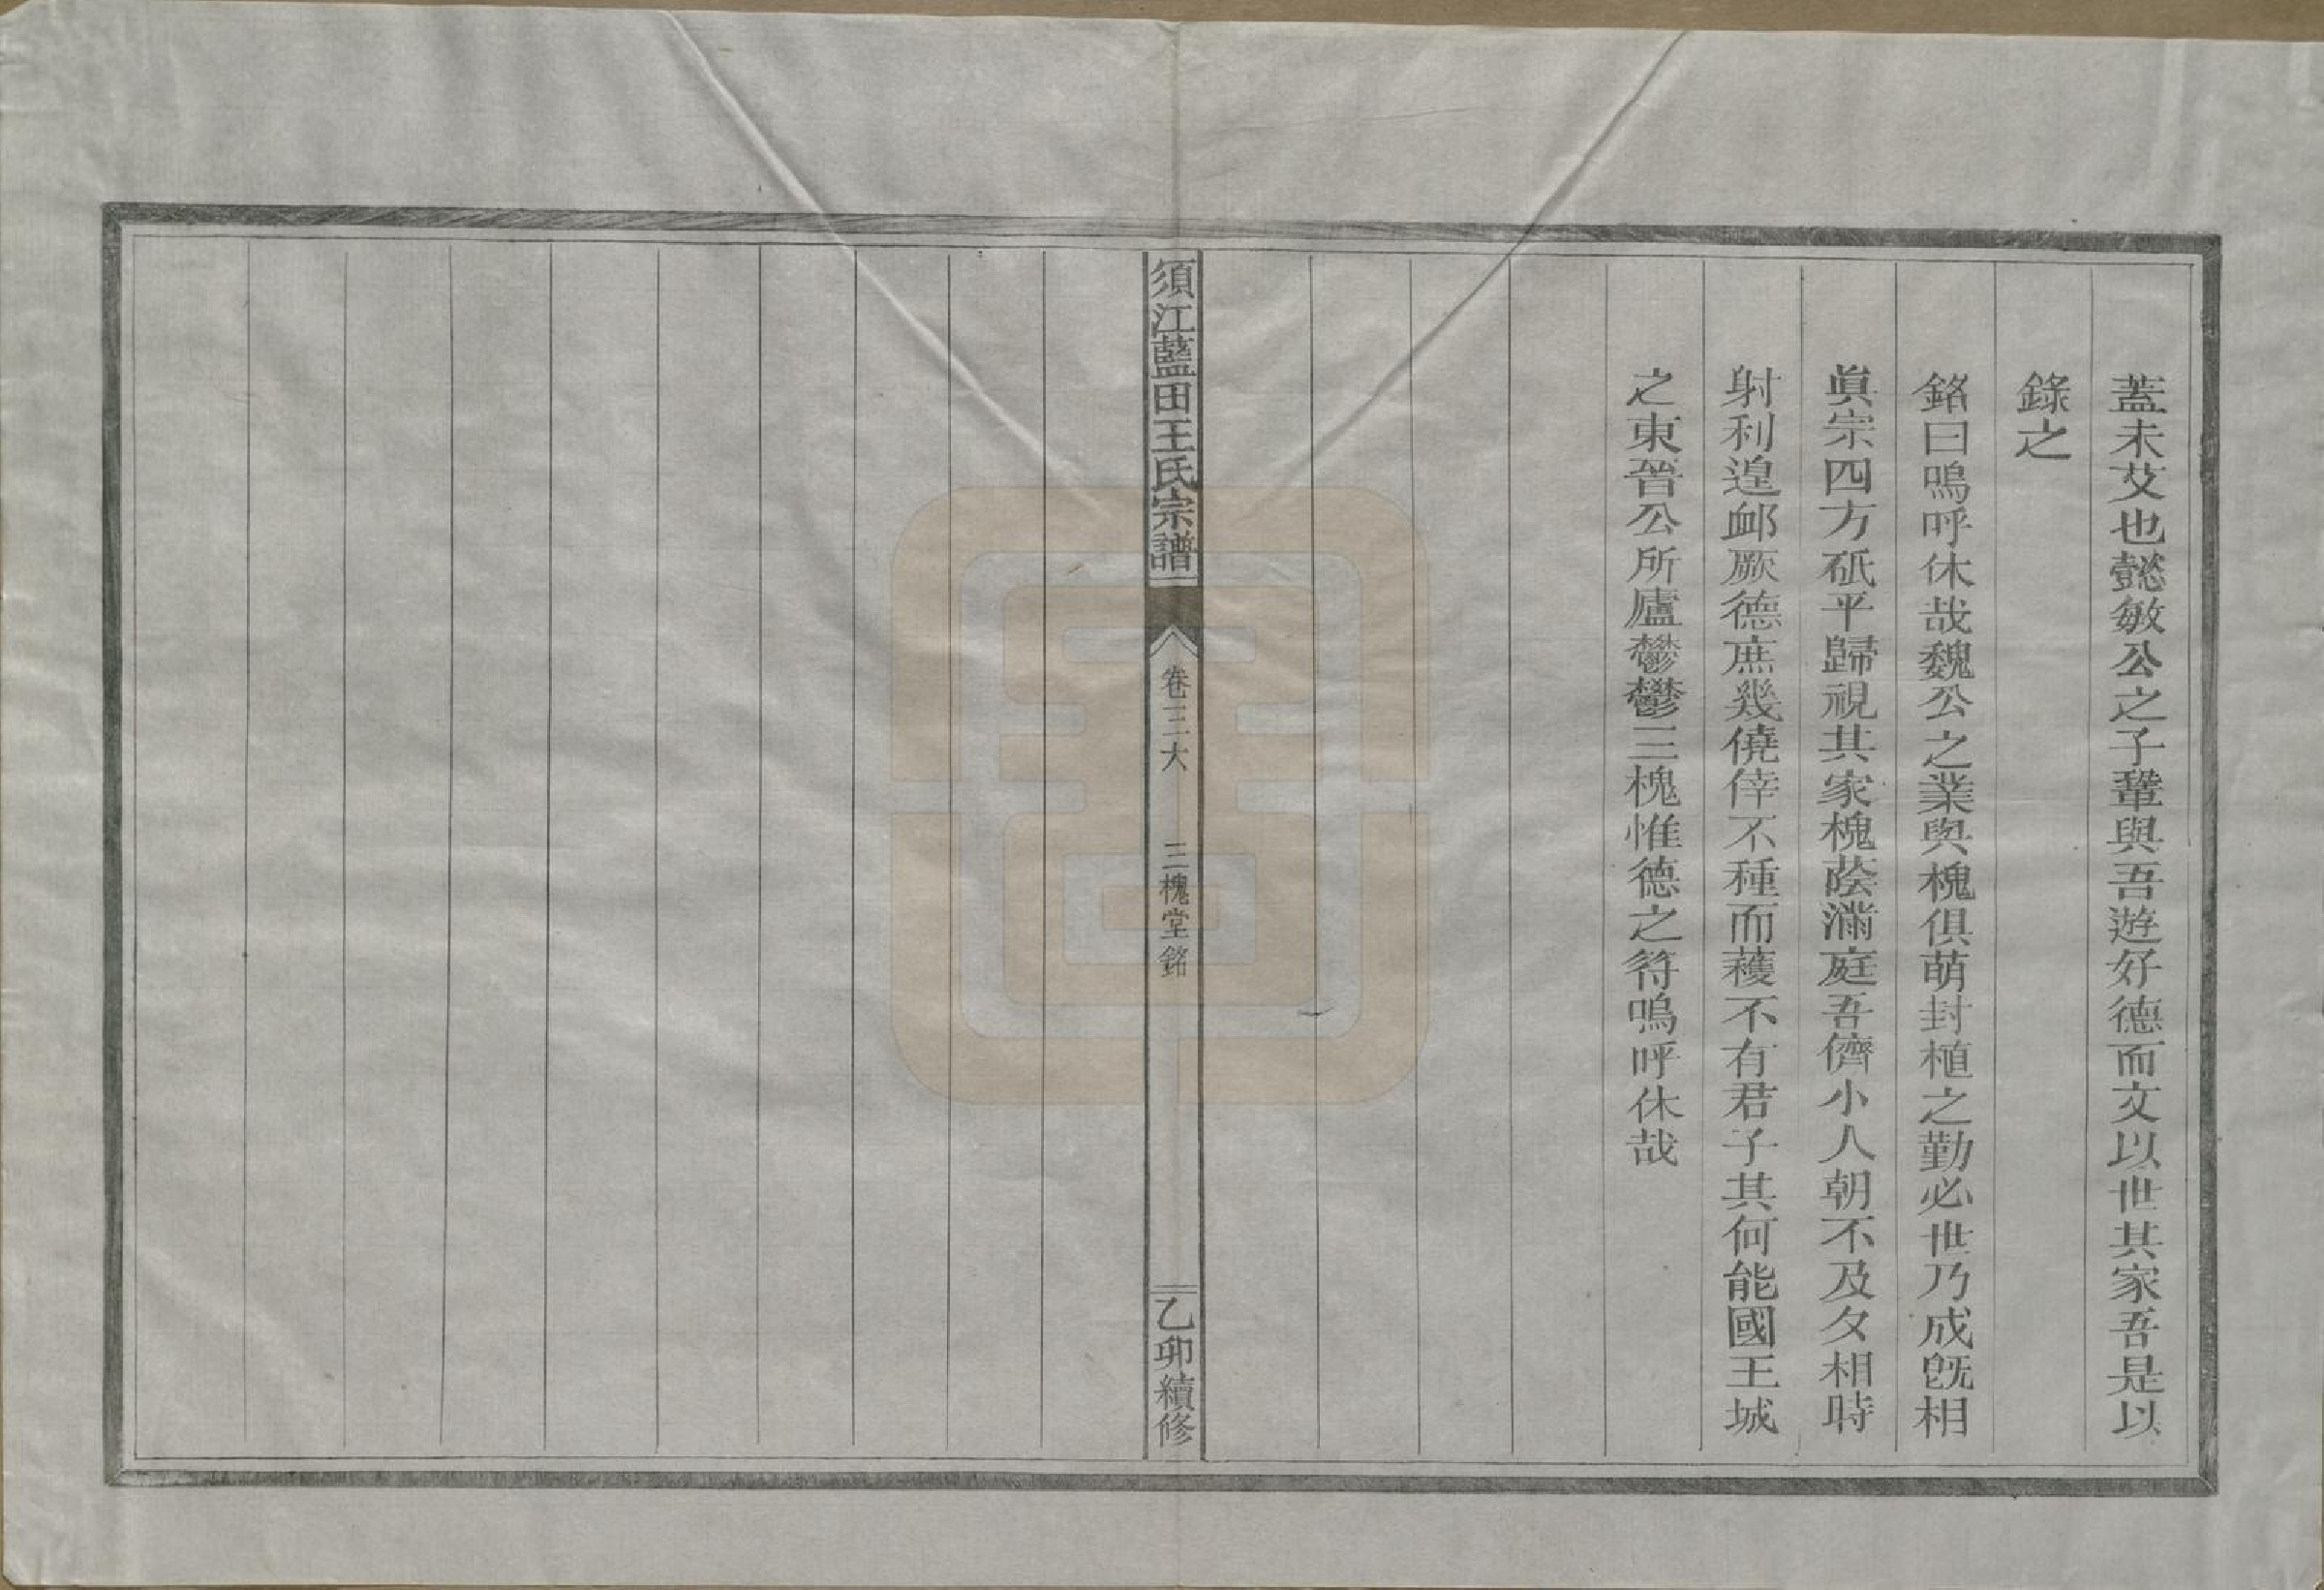 蓋未艾也懿敏公之子鞏與吾遊好德而文以世其家吾是以
錄之
銘曰嗚呼休哉魏公之業與槐俱萌封植之勤必世乃成旣相
眞宗四方砥平歸視其家槐蔭滿庭吾儕小人朝不及夕相時
射利遑卹厥德庶幾僥倖不種而穫不有君子其何能國王城
之東晉公所廬鬱鬱三槐惟德之符嗚呼休哉
須江藍田王氏宗譜
卷三大
三槐堂銘
乙卯續修